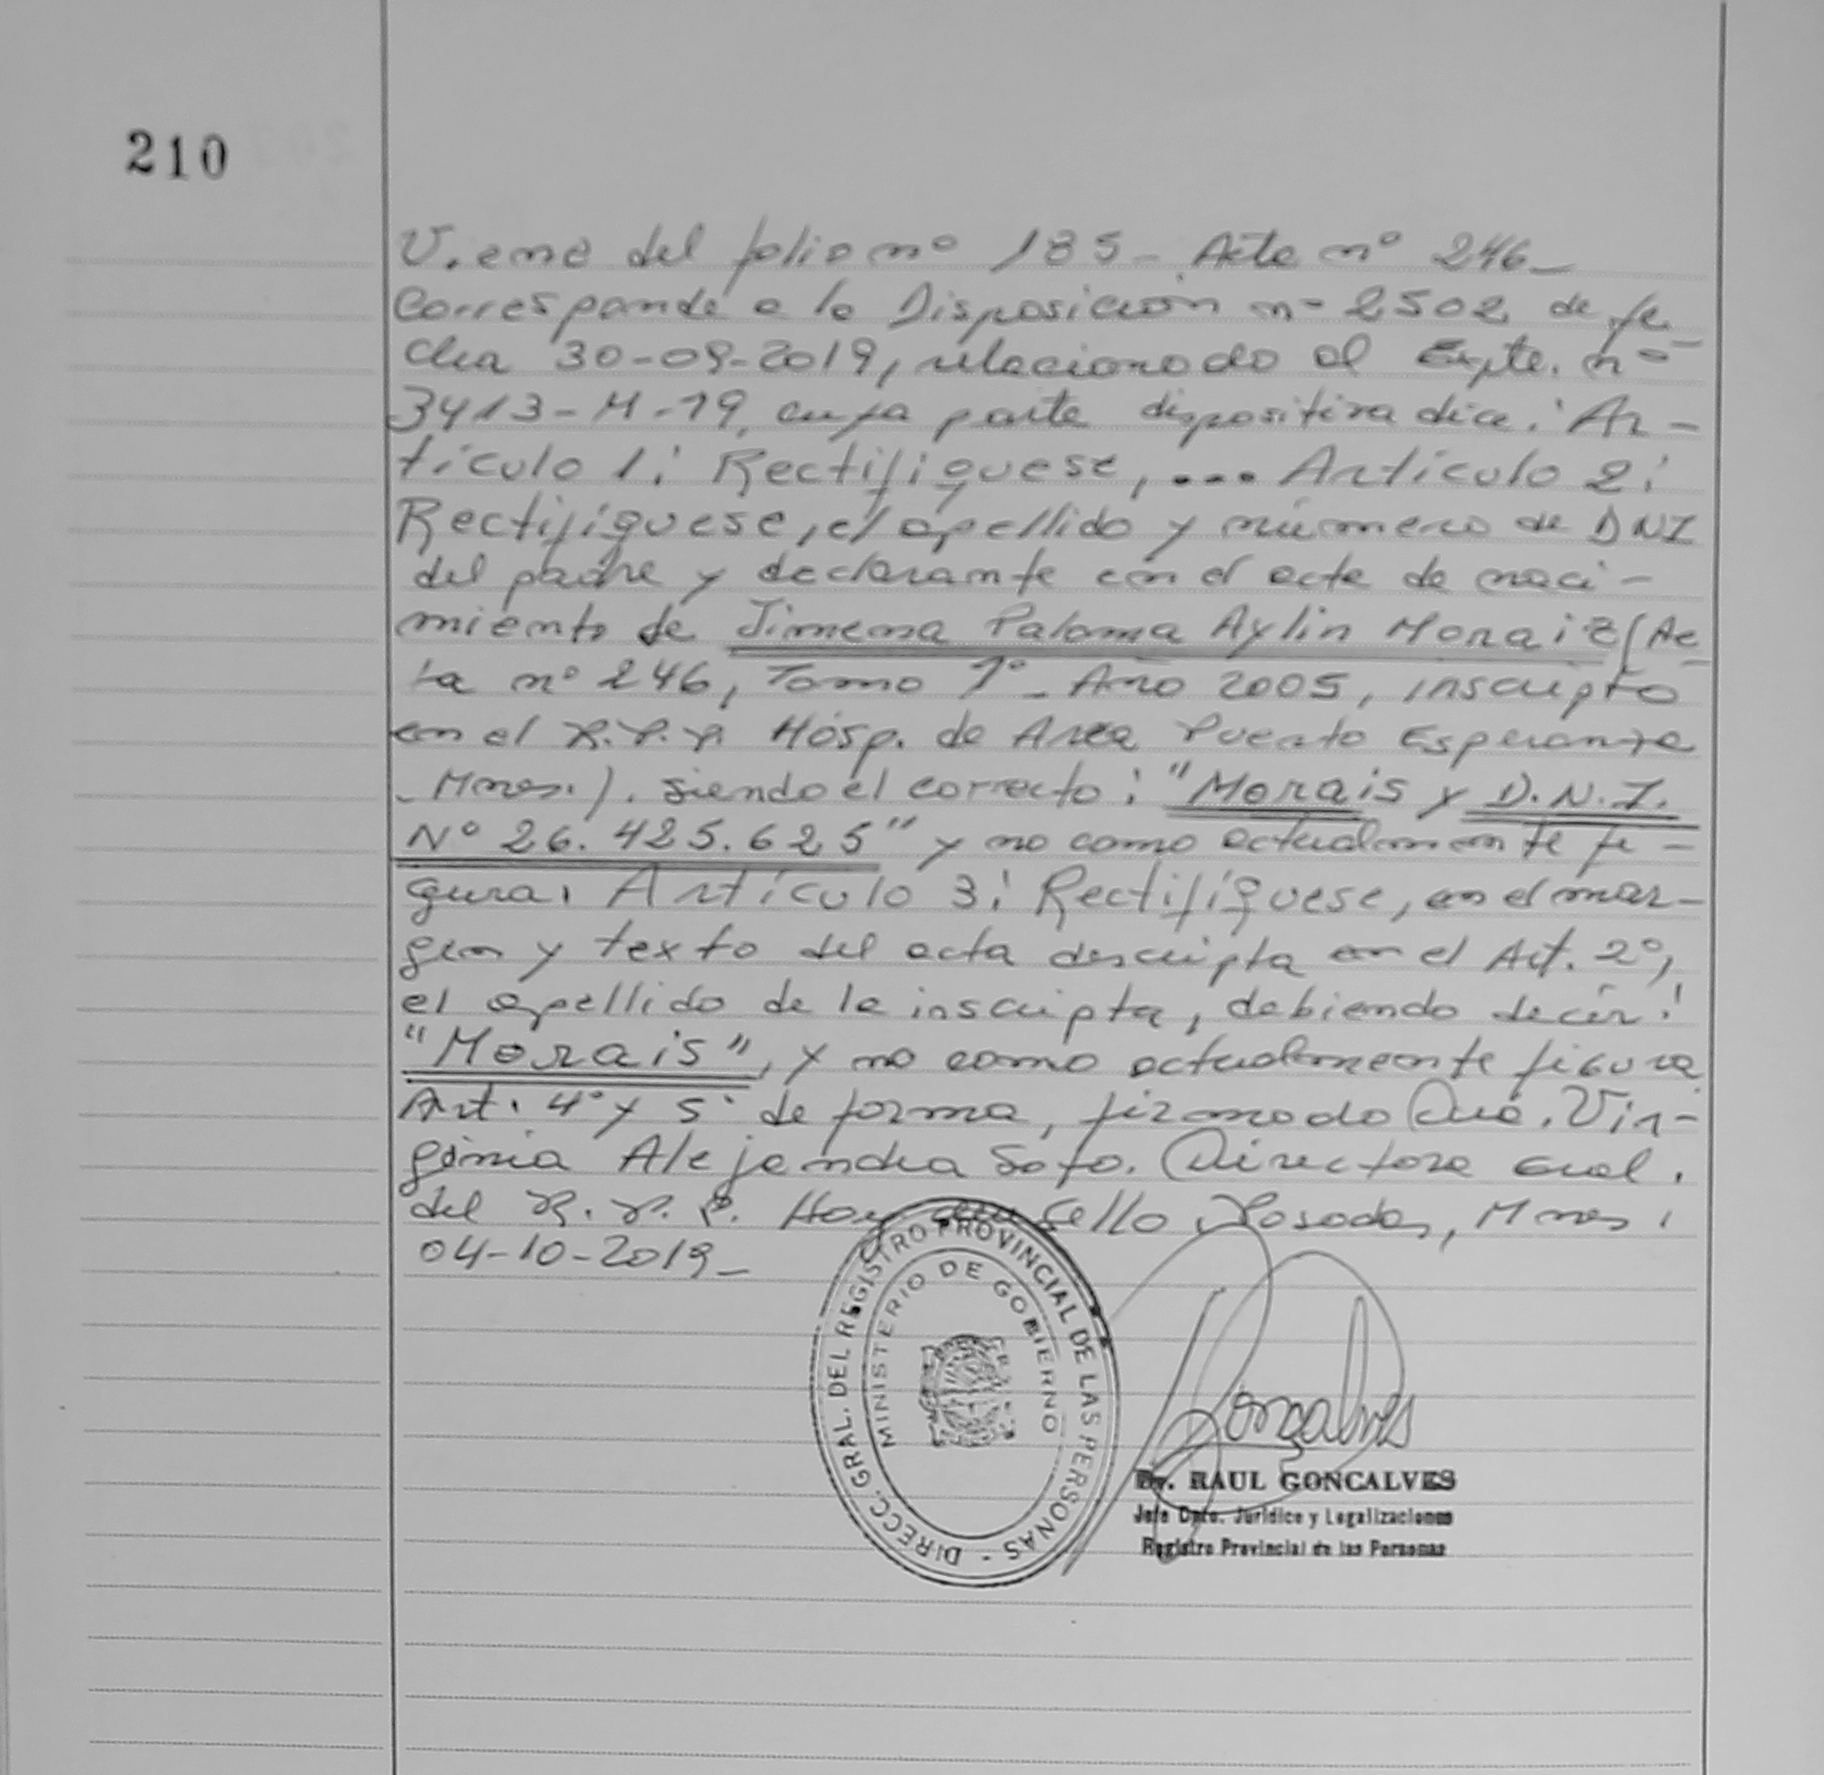 210
Viene del folio nº 185 - Acta nº 246 -
Corresponde a la Disposición nº 2502 de fe-
cha 30-09-2019, relacionado al Expte. nº
3413-M-19, cuya parte dispositiva dice: Ar-
tículo 1: Rectifíquese, ... Artículo 2:
Rectifíquese, el apellido y número de DNI
del padre y declarante en el acta de naci-
miento de Jimena Paloma Aylin Moraiz (Ac-
ta nº 246, Tomo 1º - Año 2005, inscripta
en el R.P.P. Hosp. de Area Puerto Esperanza
- Mnes.). siendo el correcto: "Morais y D.N.I.
Nº 26.425.625" y no como actualmente fi-
gura. Artículo 3: Rectifíquese, en el mar-
gen y texto del acta descripta en el Art. 2º,
el apellido de la inscripta, debiendo decir:
"Morais", y no como actualmente figura.
Art. 4º y 5º de forma, firmado Vir-
ginia Alejandra Soto. Directora Gral.
del R.P.P. Hay sello Posadas, Mnes.
04-10-2019 -
DIRECC. GRAL. DEL REGISTRO PROVINCIAL DE LAS PERSONAS -
MINISTERIO DE GOBIERNO
Gonçalves
Dr. RAUL GONCALVES
Jefe Dpto. Jurídico y Legalizaciones
Registro Provincial de las Personas